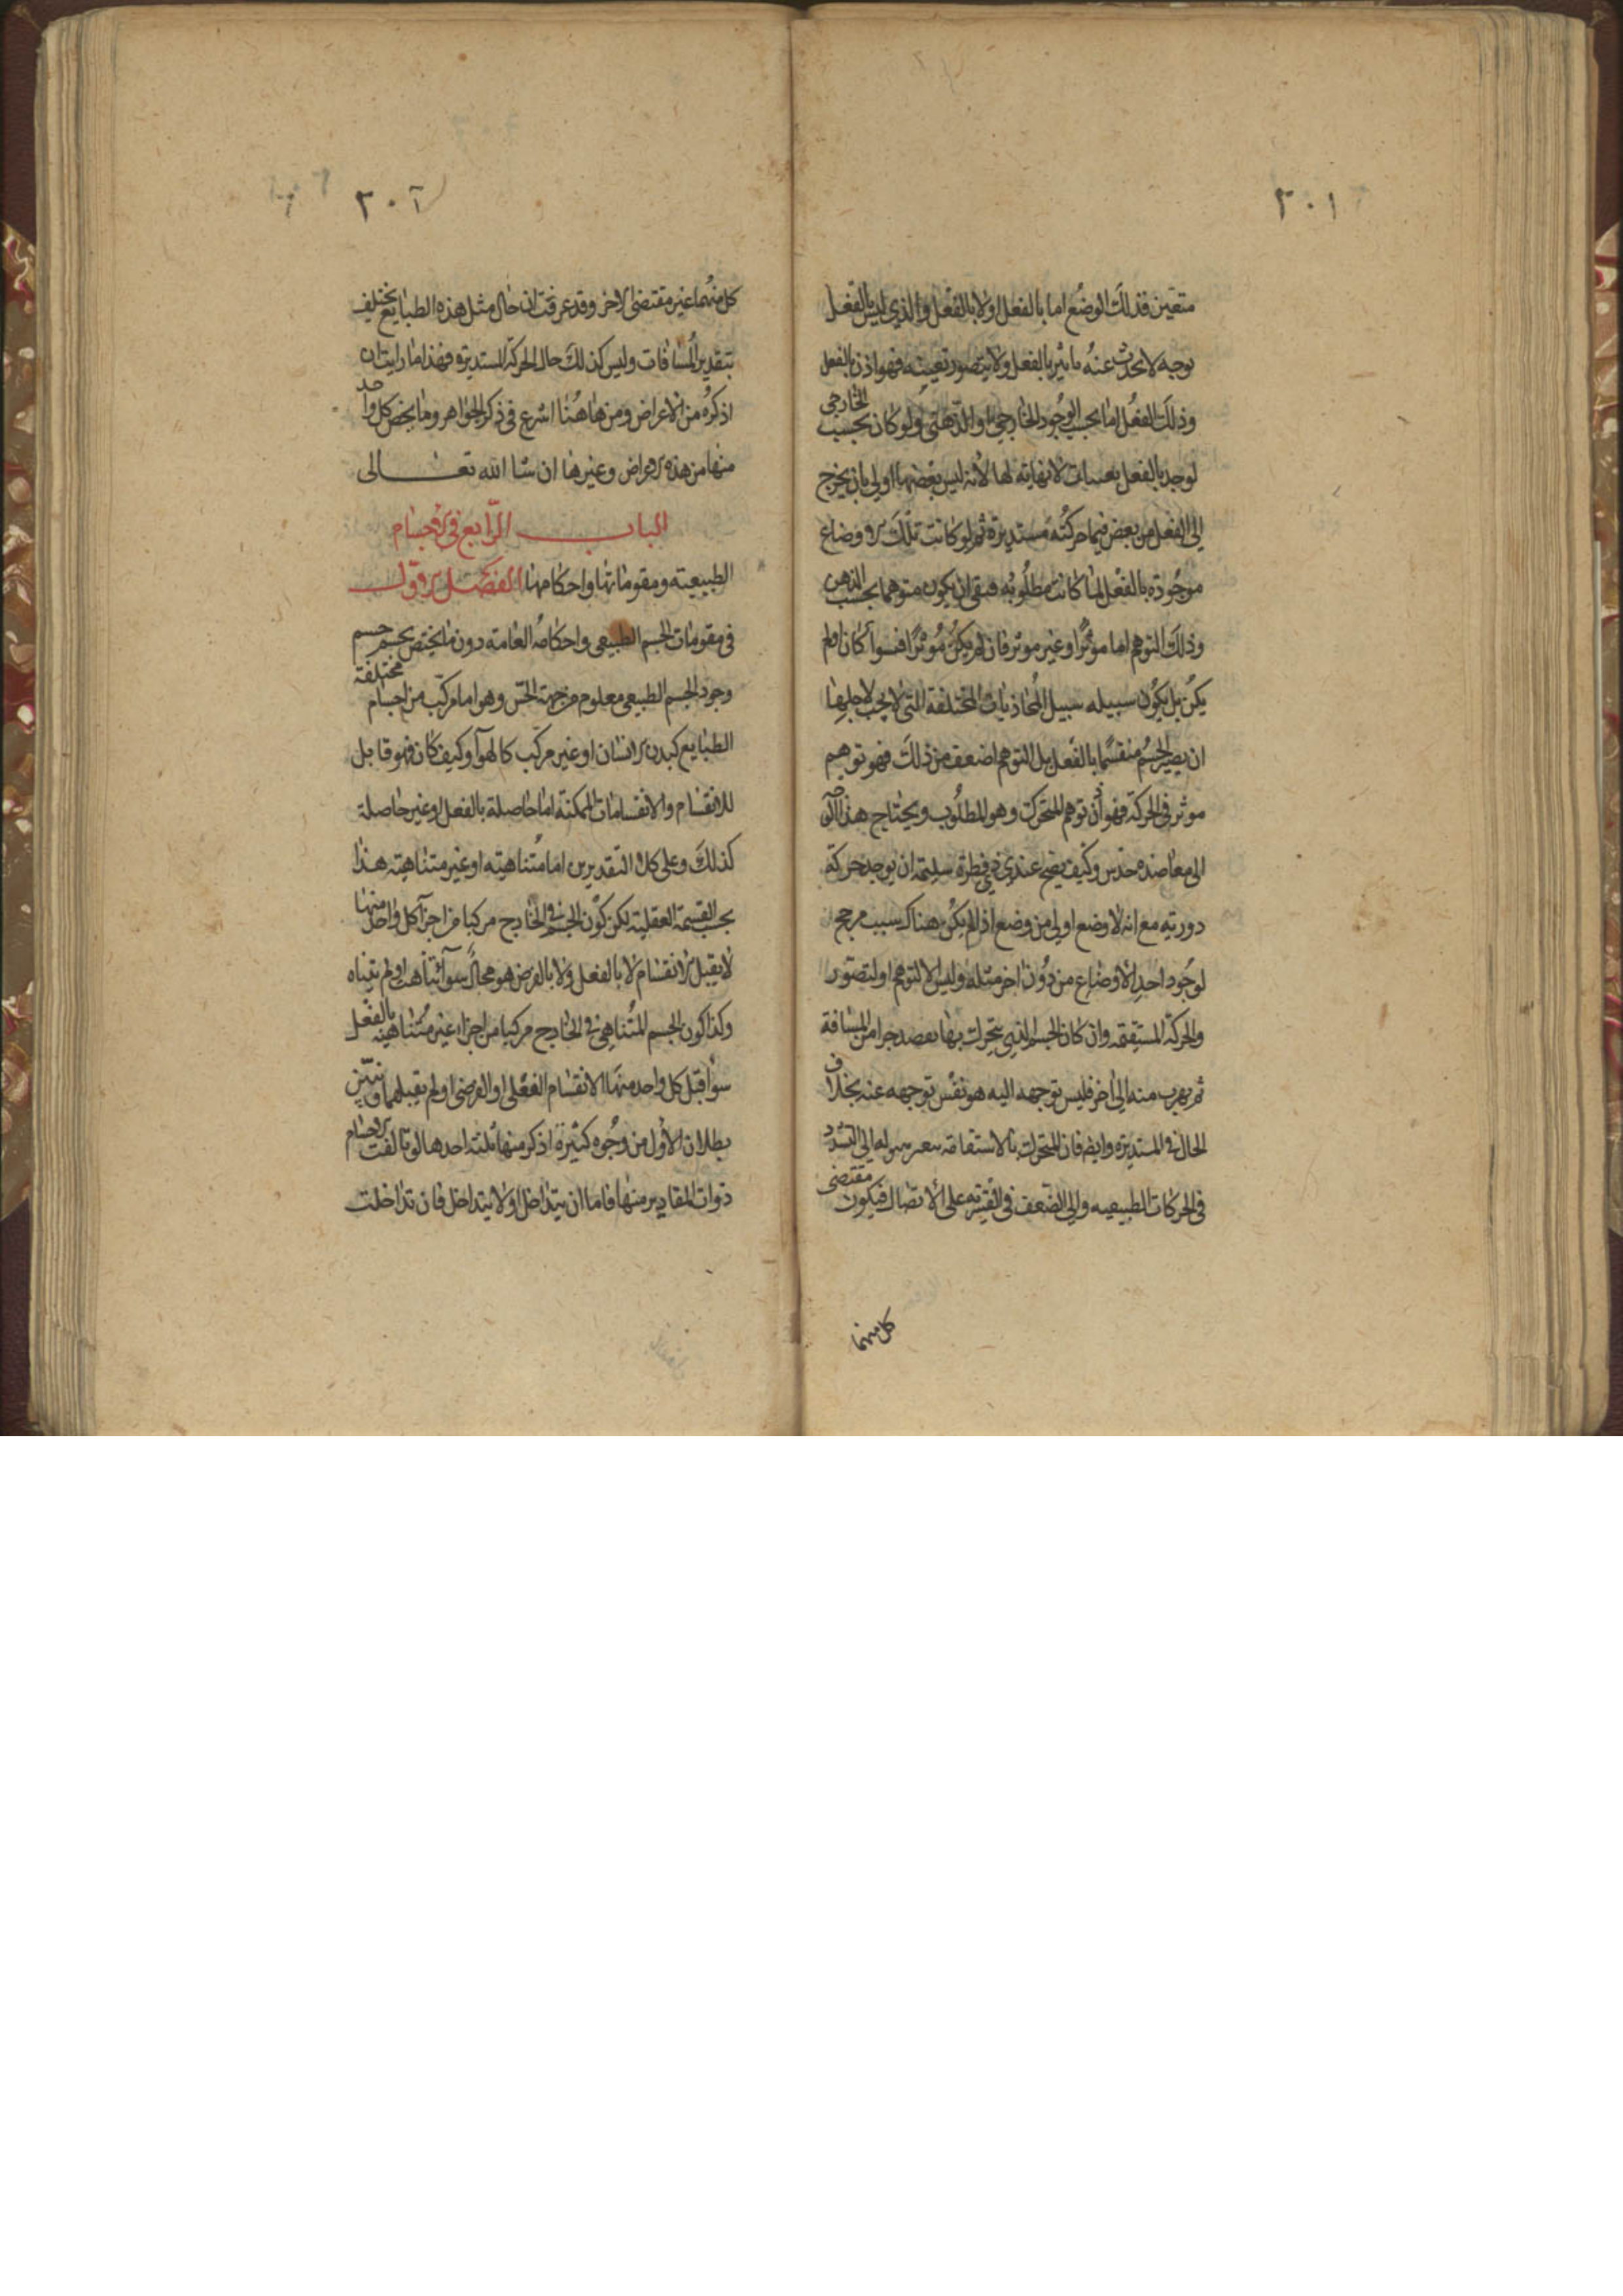 ٣٠١
متعين فذلك الوضع اما بالفعل اولا بالفعل والذي ليس بالفعل
بوجه لا يحدث عنه تاثير بالفعل ولا يتصور تعينه فهو اذن بالفعل
وذلك الفعل اما بحسب الوجود الخارجي او الذهني ولو كان بحسب الخارجي
لوجد بالفعل لا نهاية لها لانه ليس بعضها اولى بان يخرج
الى الفعل من بعض فيما حركته مستديرة ثم لو كانت تلك الاوضاع
موجودة بالفعل لما كانت مطلوبه فبقى ان يكون متوهما بحسب الذهن
وذلك التوهم اما موثرا او غير موثر فان لم يكن موثرا فسوآ كان اولم
يكن بل يكون سبيله سبيل المحاذيات المختلفة التي لا يجب لاجلها
ان يصير الجسم منقسما بالفعل بل التوهم اضعف من ذلك فهو توهم
موثر في الحركة فهو اذن توهم المتحرك وهو المطلوب ويحتاج هذا
الى معاضدة حدس وكيف يصح عند ذي فطرة سليمة ان يوجد حركة
دورية مع انه لا وضع اولى من وضع اذا لم يكن هناك سبب مرجح
لوجود احد الاوضاع من دون اخر مثله وليس الا لتوهم او لتصور
والحركة المستقيمه وان كان الجسم الذي يتحرك بها يقصد جزا من المسافة
ثم يهرب منه الى اخر فليس توجهه اليه هو نفس توجهه عنه بخلاف
الحال في المستديرة وايضا فان المتحرك بالاستقامة
في الحركات الطبيعيه والى الضعف في القسريه على الاتصال فيكون مقتضى
كل منهما
٣٠٢
كل منهما غير مقتضى الاخر وقد عرفت ان حال مثل هذه الطبايع يختلف
بتقدير المسافات وليس كذلك حال الحركة المستديرة فهذا ما رايت ان
اذكره من الاعراض ومن هاهنا اشرع في ذكر الجواهر وما يخص كل واحد
منها من هذه الاعراض وغيرها ان شا الله تعالى
الباب الرابع في الاجسام
الطبيعية ومقوماتها واحكامها الفصل الاول
في مقومات الجسم الطبيعي واحكامه العامة دون ما يختص بجسم جسم
وجود الجسم الطبيعي معلوم من جهة الحس وهو اما مركب من اجسام مختلفة
الطبايع كبدن الانسان او غير مركب كالهوآ وكيف كان فهو قابل
للانقسام والانقسامات الممكنة اما حاصلة بالفعل او غير حاصلة
كذلك وعلى كل التقديرين اما متناهية او غير متناهية هذا
بحسب القسمة العقلية لكن كون الجسم في الخارج مركبا من اجزآ كل واحد منها
لا يقبل الانقسام لا بالفعل ولا بالفرض هو محال سوآ تناهت او لم تتناه
وكذا كون الجسم المتناهي في الخارج مركبا من اجزاء غير متناهية بالفعل
سوآ قبل كل واحد منها الانقسام الفعلي او الفرضي او لم يقبلهما ونبين
بطلان الاول من وجوه كثيرة اذكر منها ثلثة احدها لو تالفت الاجسام
ذوات المقادير منها فاما ان يتداخل اولا يتداخل فان تداخلت